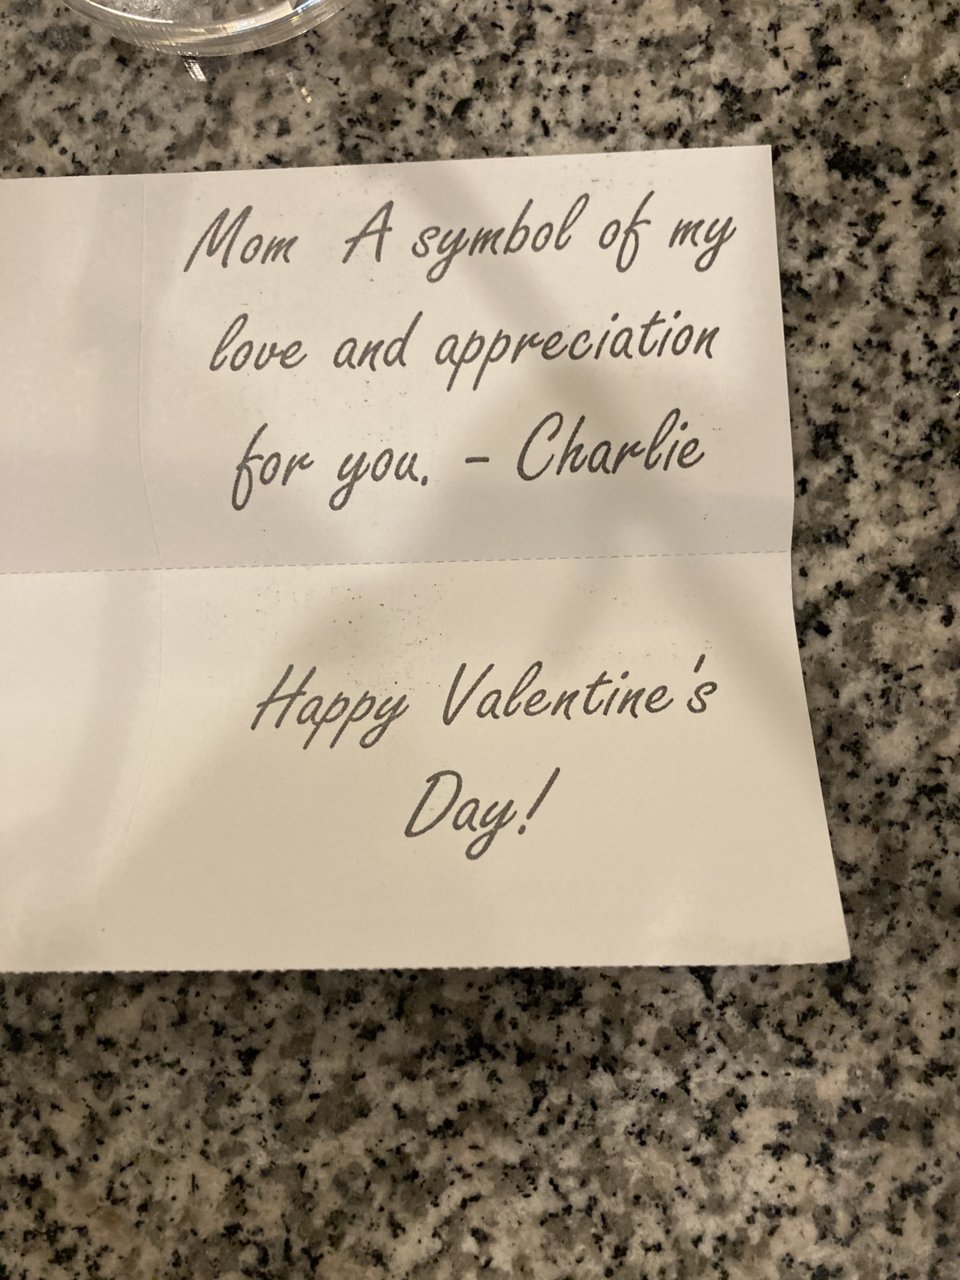 Mom A symbol of my
love and appreciation
for you. - Charlie
Happy Valentine's
Day!